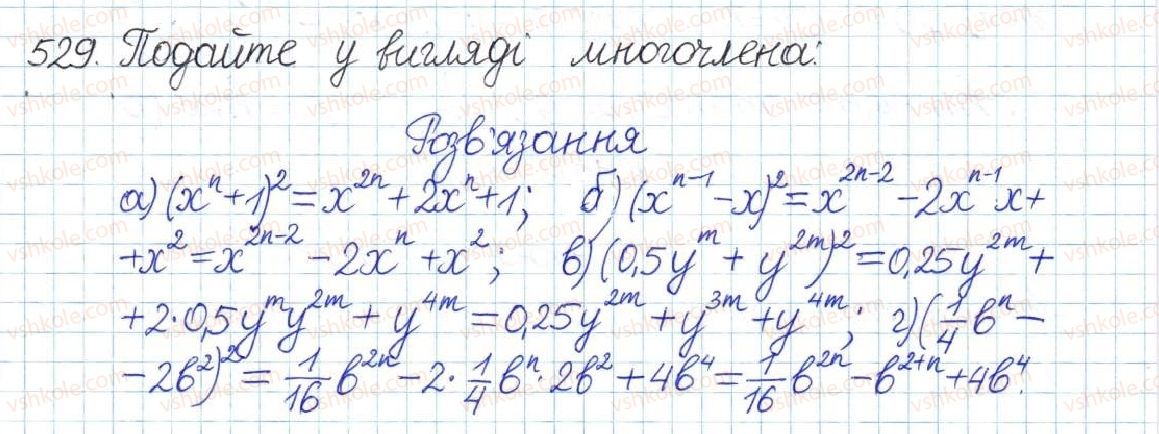 529. Подайте у вигляді многочлена:
Розв'язання
а) (xⁿ + 1)² = x²ⁿ + 2xⁿ + 1; б) (xⁿ⁻¹ - x)² = x²ⁿ⁻² - 2xⁿ⁻¹x +
+ x² = x²ⁿ⁻² - 2xⁿ + x²; в) (0,5yᵐ + y²ᵐ)² = 0,25y²ᵐ +
+ 2·0,5yᵐy²ᵐ + y⁴ᵐ = 0,25y²ᵐ + y³ᵐ + y⁴ᵐ; г) (1/4 bⁿ -
- 2b²)² = 1/16 b²ⁿ - 2· 1/4 bⁿ · 2b² + 4b⁴ = 1/16 b²ⁿ - b²⁺ⁿ + 4b⁴.